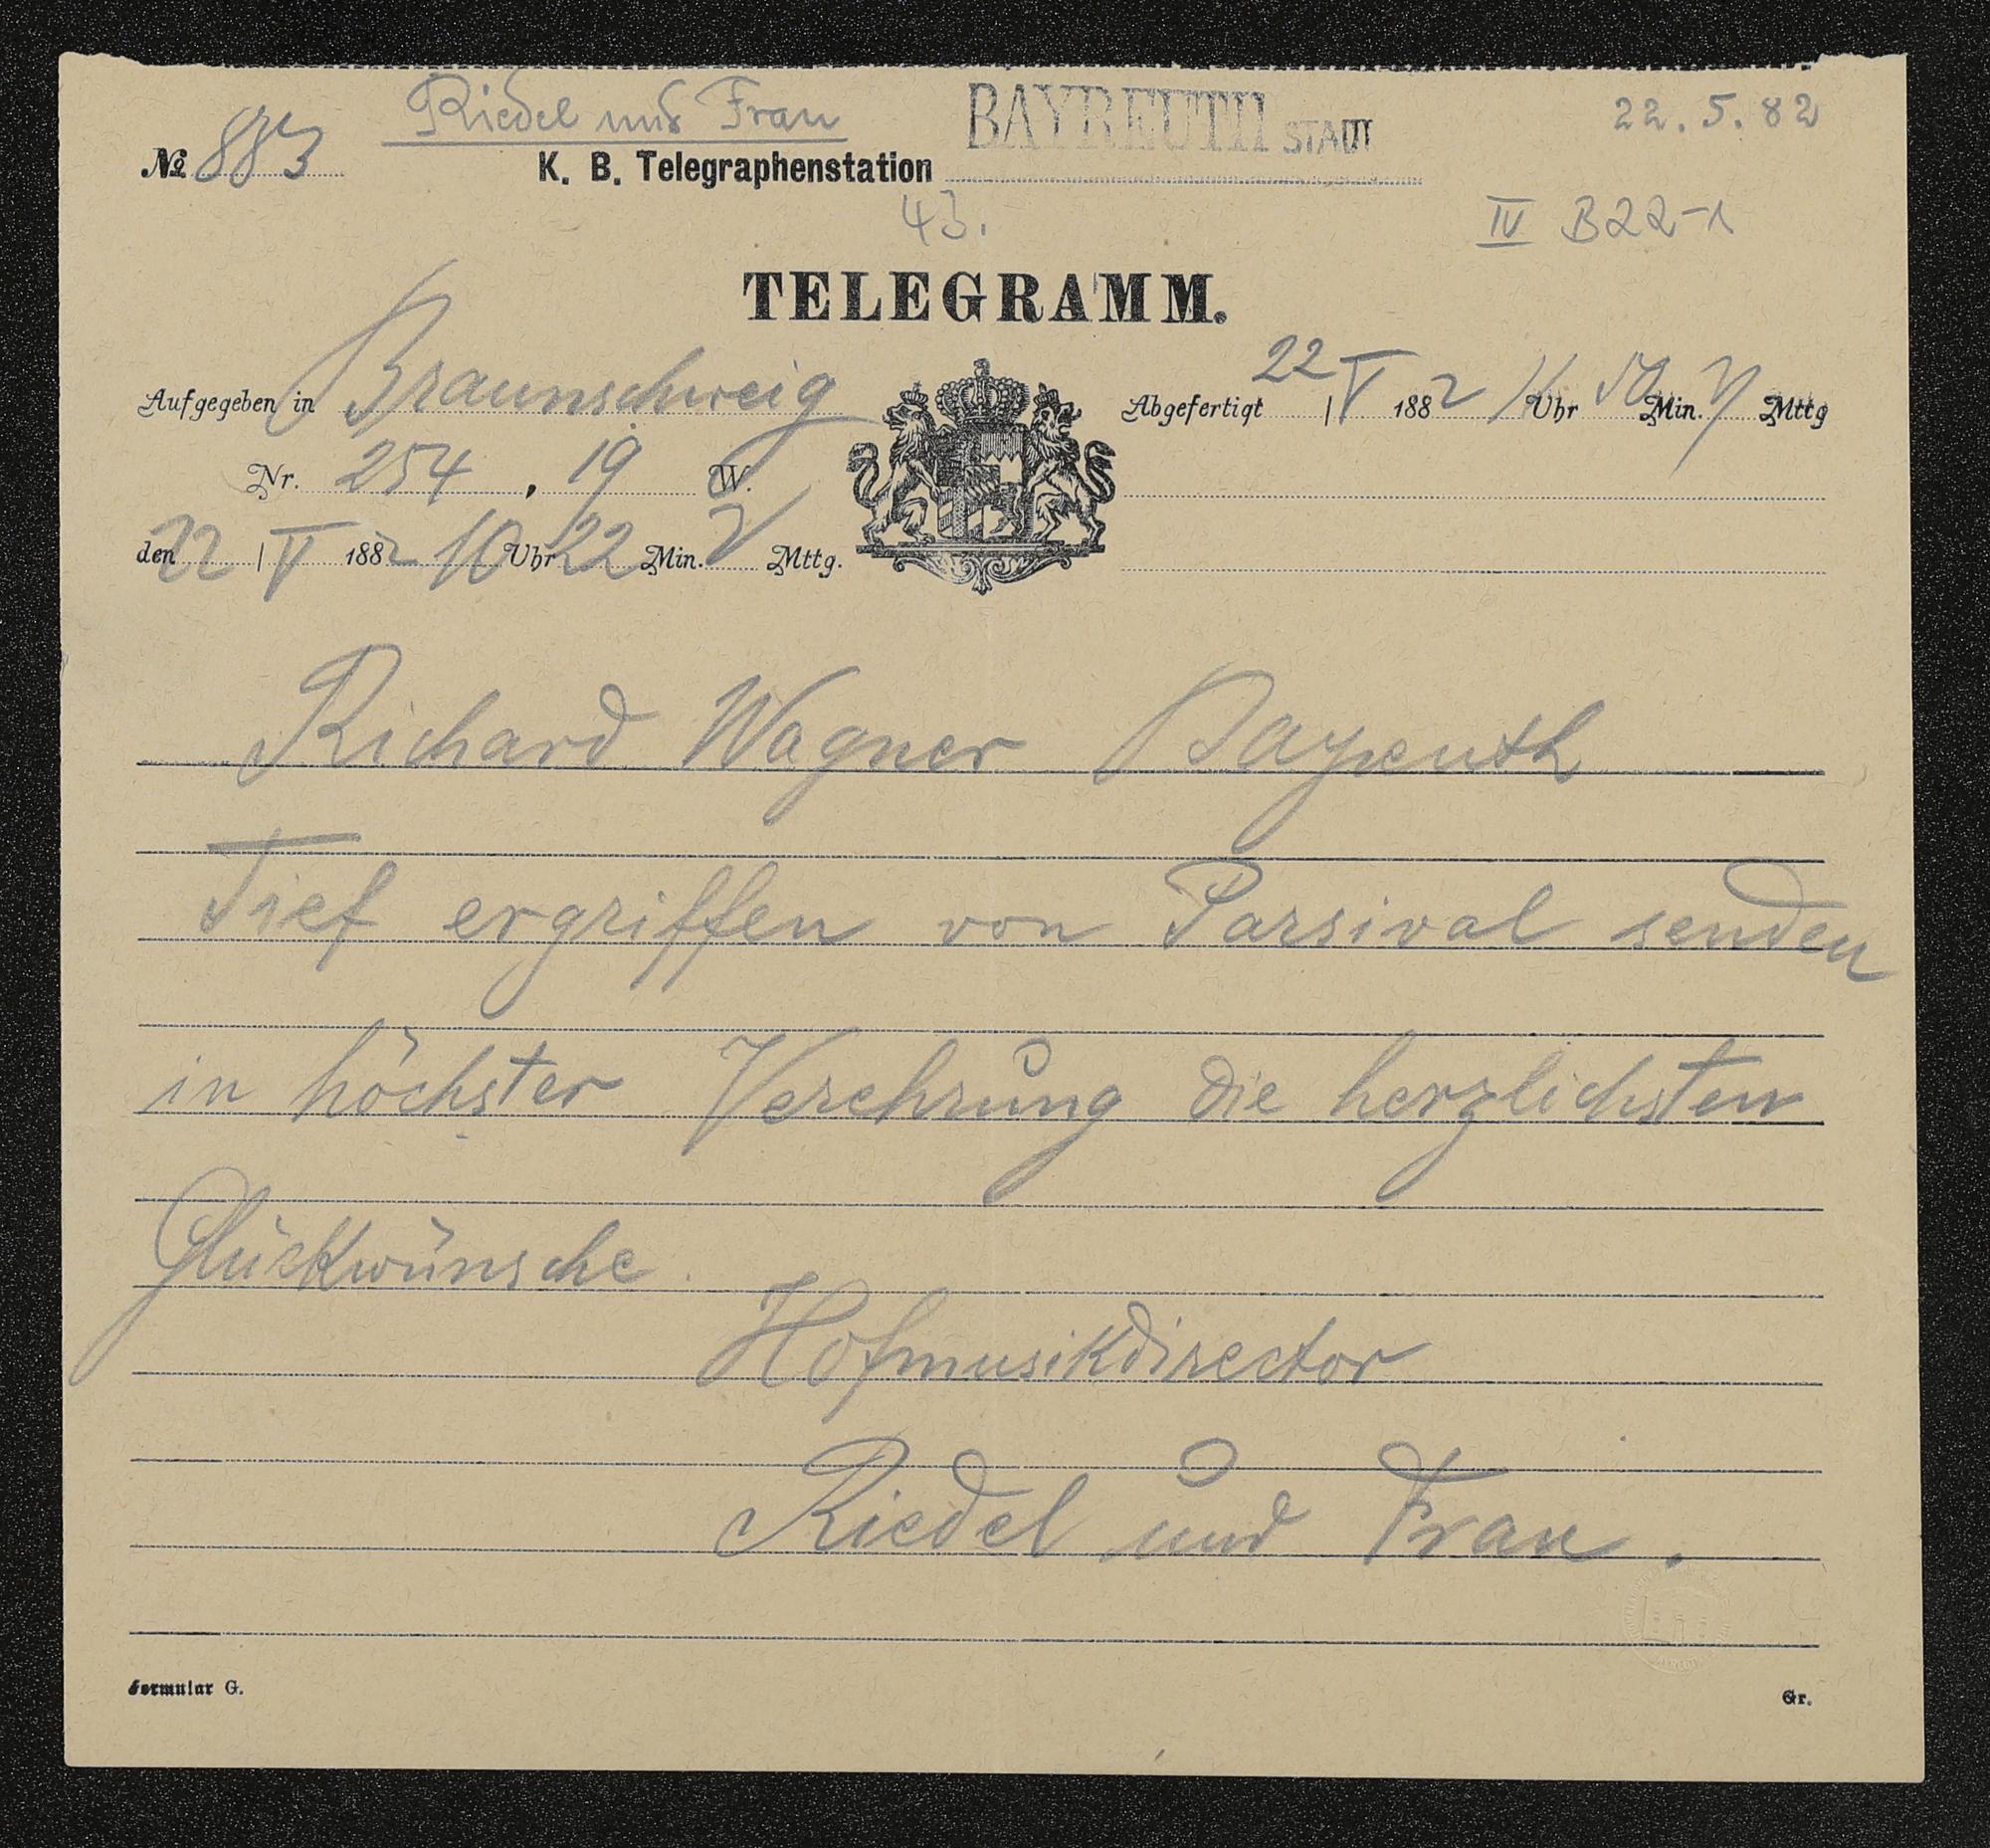 Riedel und Frau
BAYREUTH STADT
22. 5. 82
№ 883
K. B. Telegraphenstation
43.
IV B22-1
TELEGRAMM.
Aufgegeben in Braunschweig
Abgefertigt 22|V 1882 11 Uhr 50 Min. V Mttg
Nr. 254, 19 W.
den 22 | V 1882 10 Uhr 22 Min. V Mttg.
Richard Wagner Bayreuth
Tief ergriffen von Parsival senden
in höchster Verehrung die herzlichsten
Glückwünsche.
Hofmusikdirector
Riedel und Frau.
Formular G.
Gr.